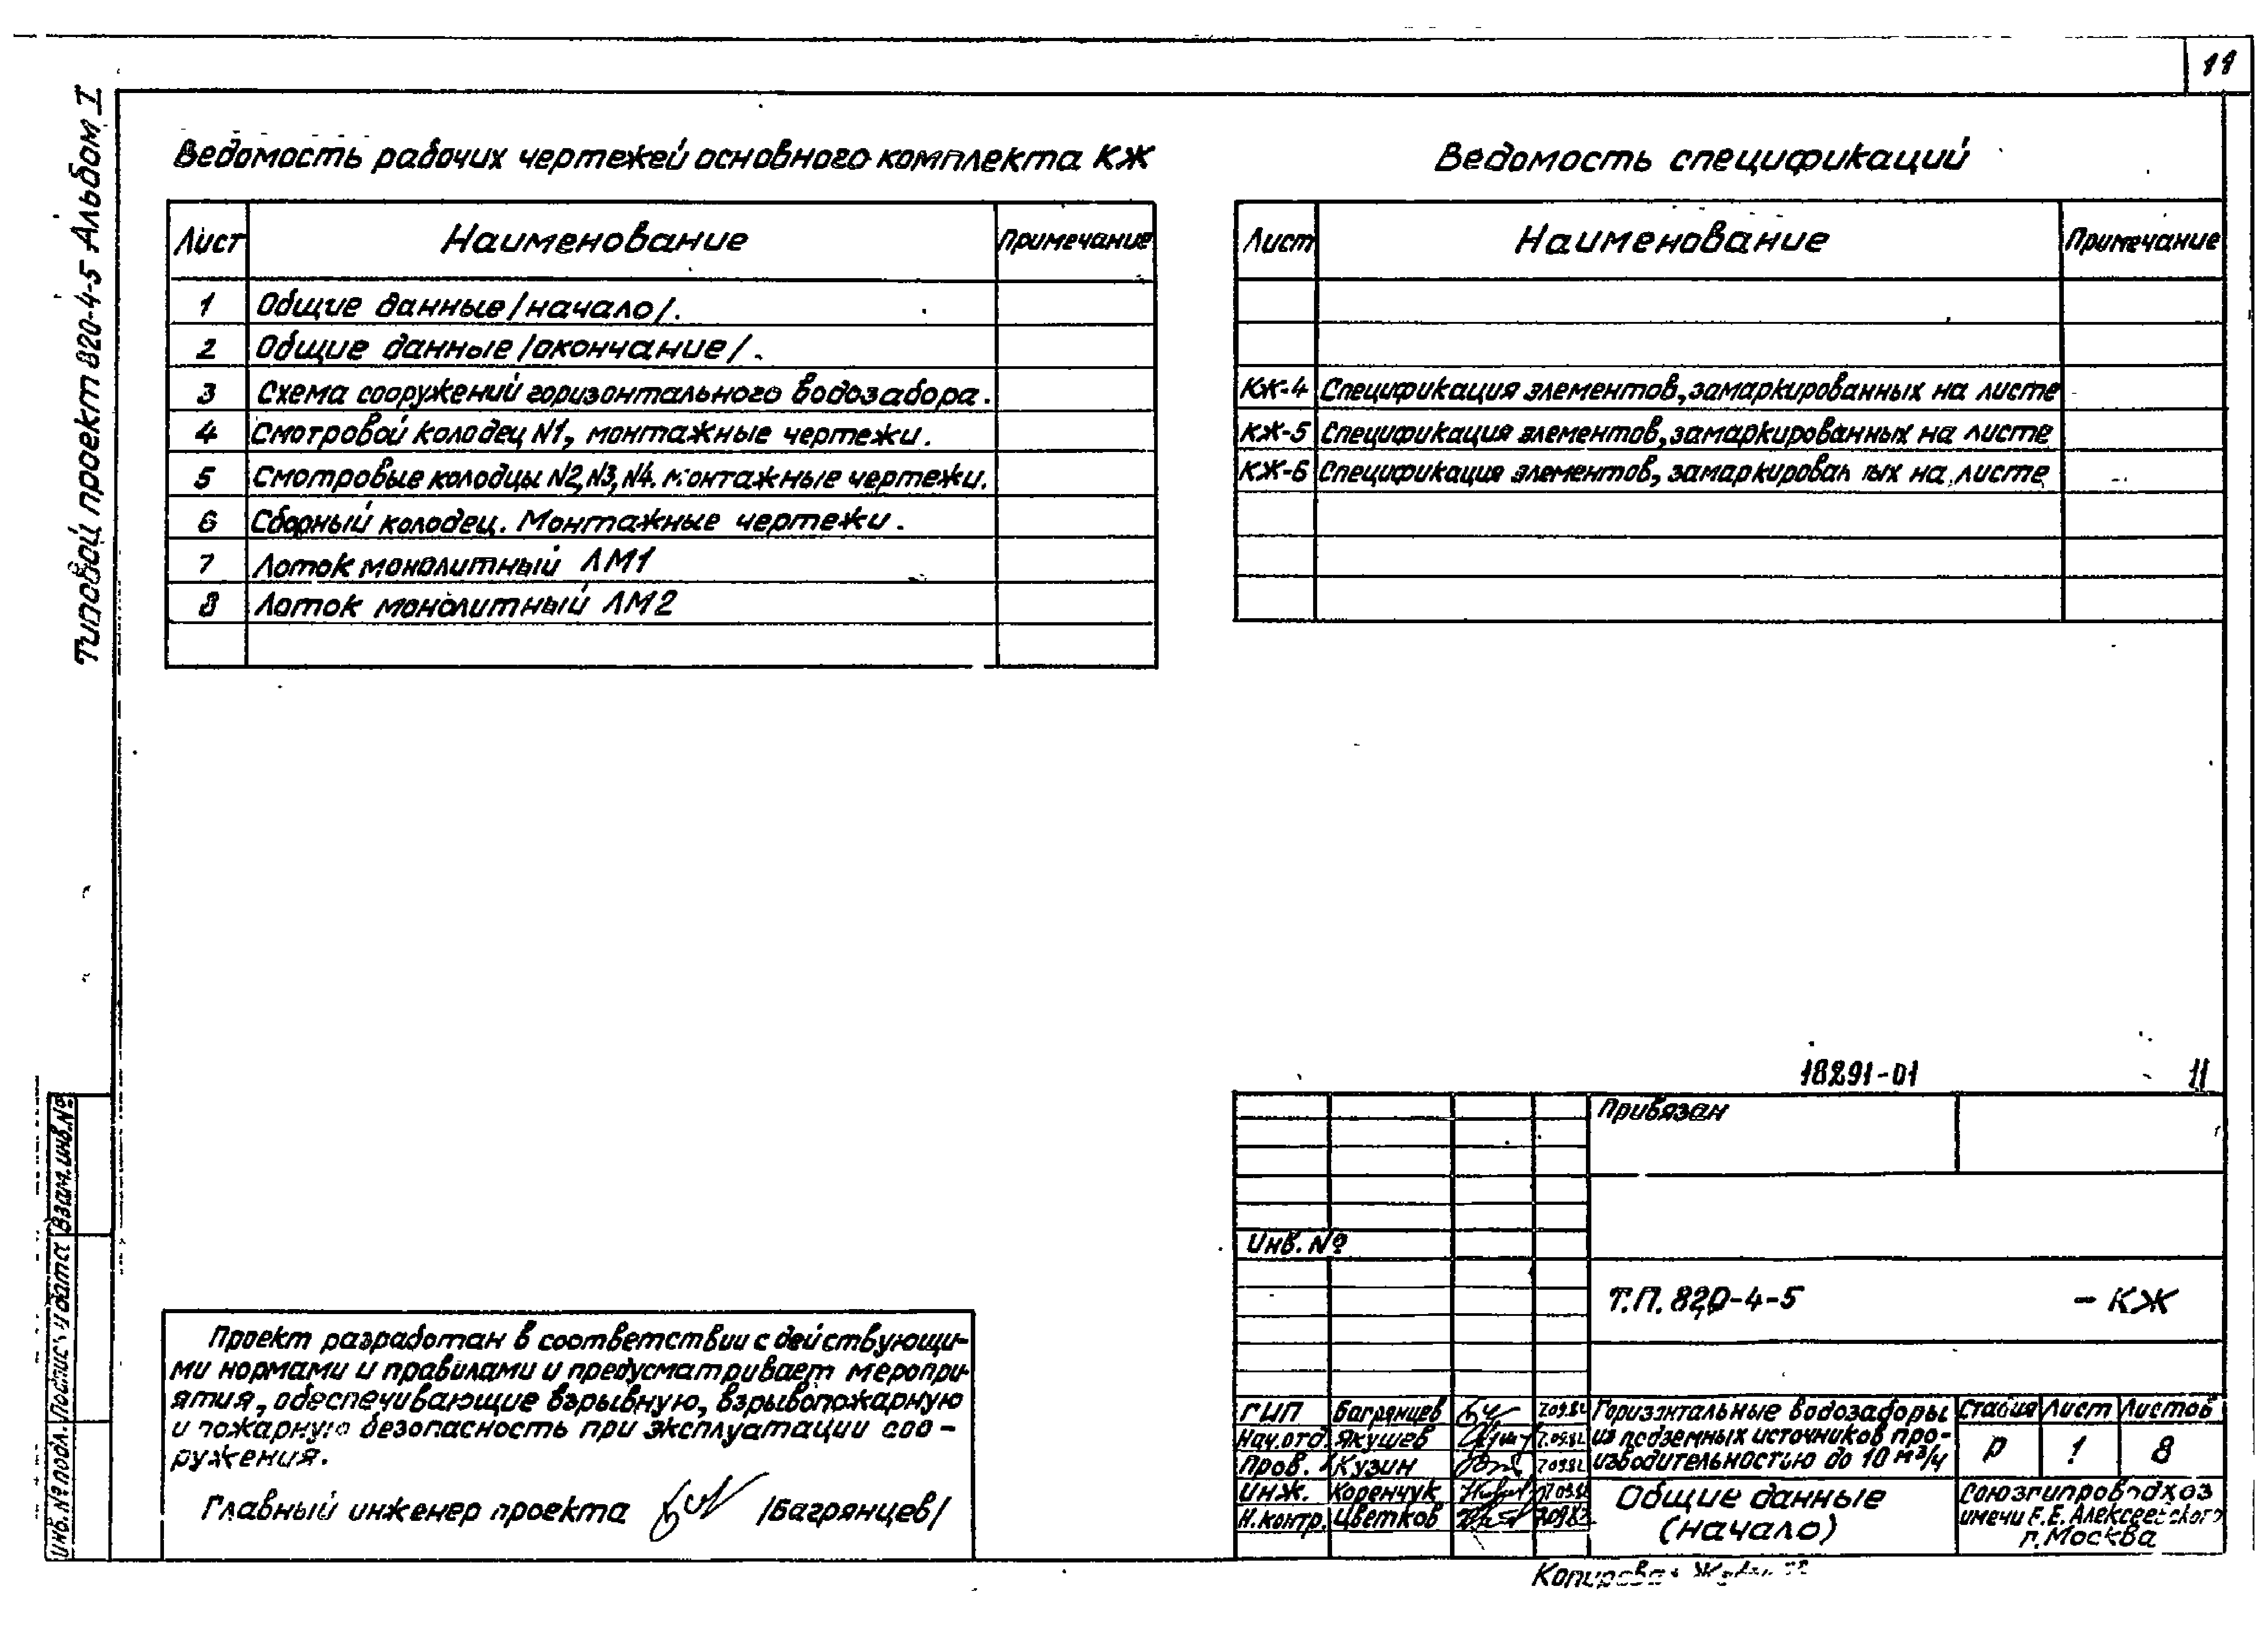 11
Типовой проект 820-4-5 Альбом I
Ведомость рабочих чертежей основного комплекта КЖ
Лист Наименование Примечание
1 Общие данные /начало/.
2 Общие данные /окончание/.
3 Схема сооружений горизонтального водозабора.
4 Смотровой колодец N1, монтажные чертежи.
5 Смотровые колодцы N2, N3, N4. монтажные чертежи.
6 Сборный колодец. Монтажные чертежи.
7 Лоток монолитный ЛМ1
8 Лоток монолитный ЛМ2
Ведомость спецификаций
Лист Наименование Примечание
КЖ-4 Спецификация элементов, замаркированных на листе
КЖ-5 Спецификация элементов, замаркированных на листе
КЖ-6 Спецификация элементов, замаркированных на листе
Взам. инв. №
Подпись и дата
Инв. № подл.
Проект разработан в соответствии с действующи-
ми нормами и правилами и предусматривает меропри-
ятия, обеспечивающие взрывную, взрывопожарную
и пожарную безопасность при эксплуатации соо-
ружения.
Главный инженер проекта /Багрянцев/
18291-01 11
Привязан
Инв. №
Т.П. 820-4-5 - КЖ
ГИП Багрянцев
Нач.отд. Якушев
Пров. Кузин
Инж. Коренчук
Н.контр. Цветков
Горизонтальные водозаборы
из подземных источников про-
изводительностью до 10 м³/ч
Стадия Лист Листов
Р 1 8
Общие данные
(начало)
Союзгипроводхоз
имени Е.Е. Алексеевского
г. Москва
Копировал